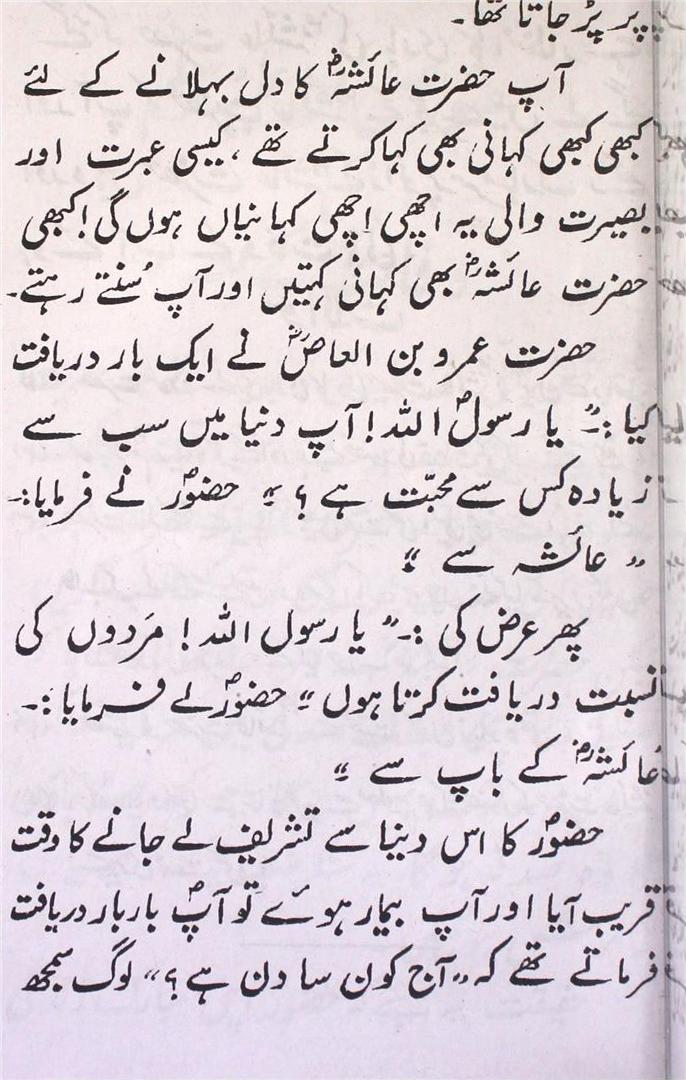 پر پڑ جاتا تھا۔
آپ حضرت عائشہؓ کا دل بہلانے کے لئے
کبھی کبھی کہانی بھی کہا کرتے تھے، کیسی عبرت اور
بصیرت والی یہ اچھی اچھی کہانیاں ہوں گی! کبھی
حضرت عائشہؓ بھی کہانی کہتیں اور آپ سُنتے رہتے۔
حضرت عمرو بن العاصؓ نے ایک بار دریافت
کیا:۔ ”یا رسولؐ اللہ! آپ دنیا میں سب سے
زیادہ کس سے محبّت ہے؟“ حضورؐ نے فرمایا:۔
”عائشہ سے“
پھر عرض کی:۔ ”یا رسول اللہ! مَردوں کی
نسبت دریافت کرتا ہوں“ حضورؐ نے فرمایا:۔
عائشہؓ کے باپ سے“
حضورؐ کا اس دنیا سے تشریف لے جانے کا وقت
قریب آیا اور آپ بیمار ہوئے تو آپؐ بار بار دریافت
فرماتے تھے کہ ”آج کون سا دن ہے؟“ لوگ سمجھ